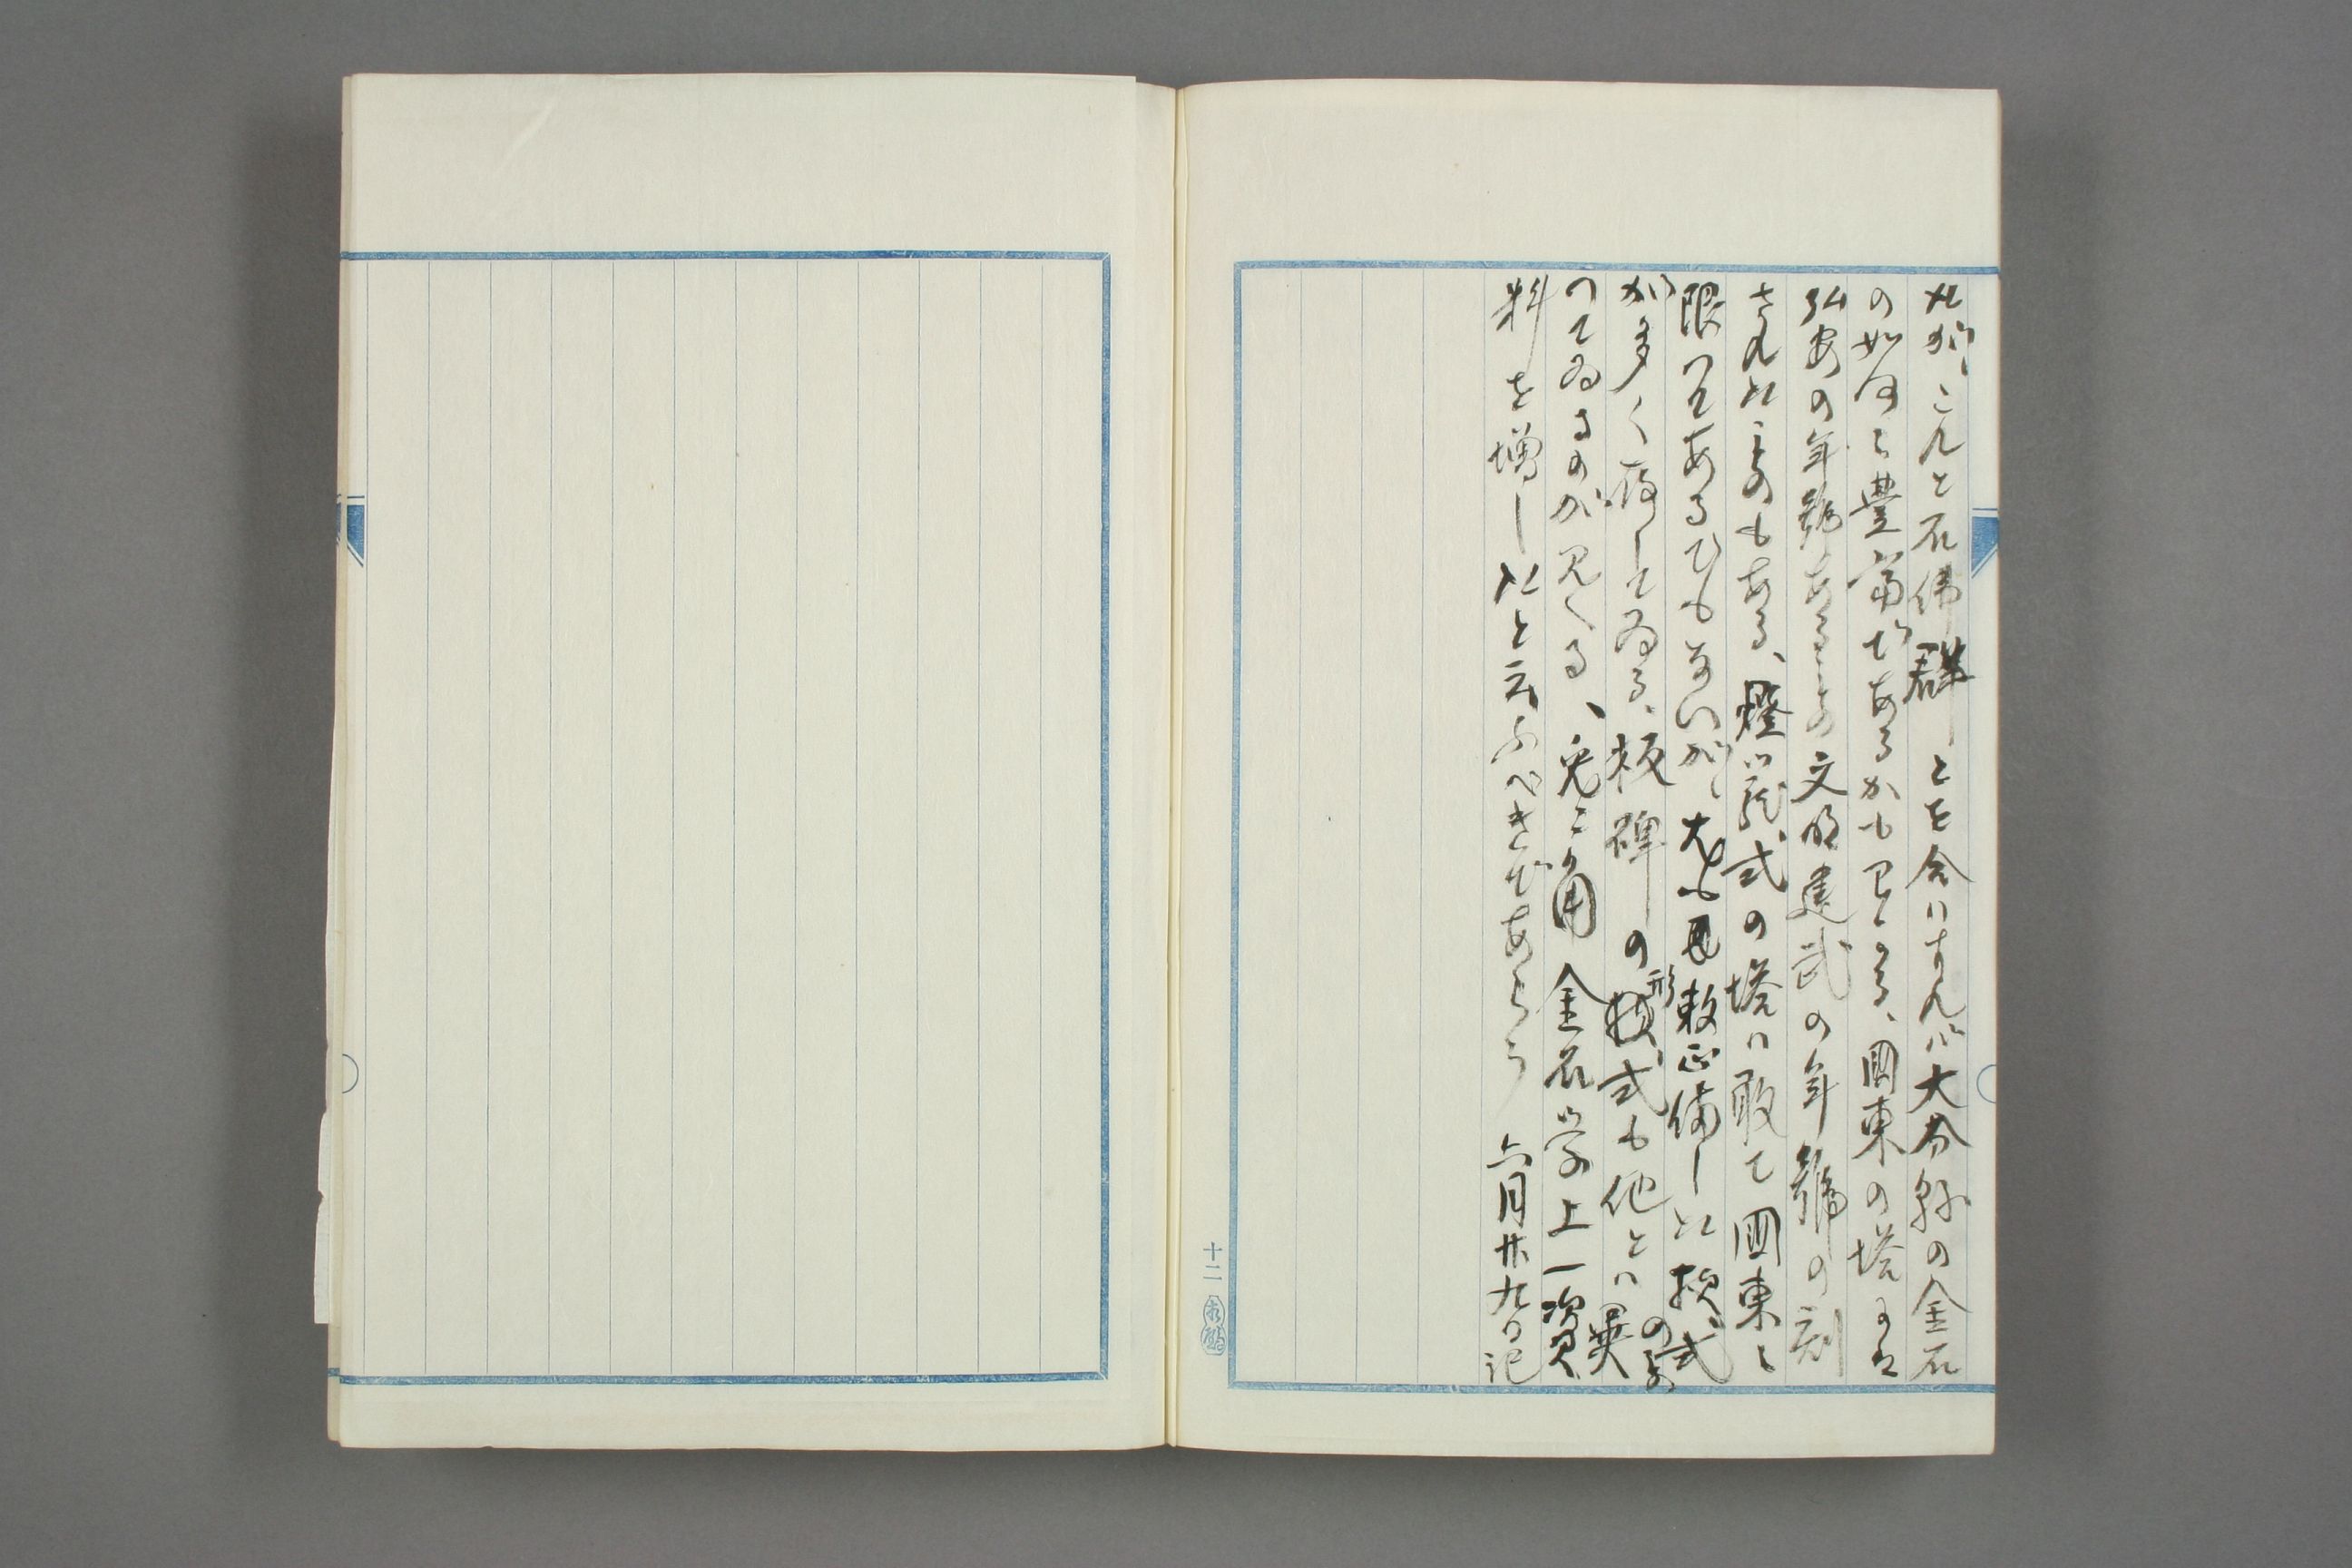 たが、これと石佛群とを合はすれば大分縣の金石
の如何に豊富であるかも知れる、國東の塔には
弘安の年號あるもの文明建武の年號の刻
されたものもある、燈籠式の塔は敢て國東に
限つてあるでもないが、大も整備した模式のもの
が多く存してゐる、板碑の形式も他とは異
つてゐるのが見へる、兎に角金石学上一資
料を増したと云ふべきであらう 六月廿九日記
十二